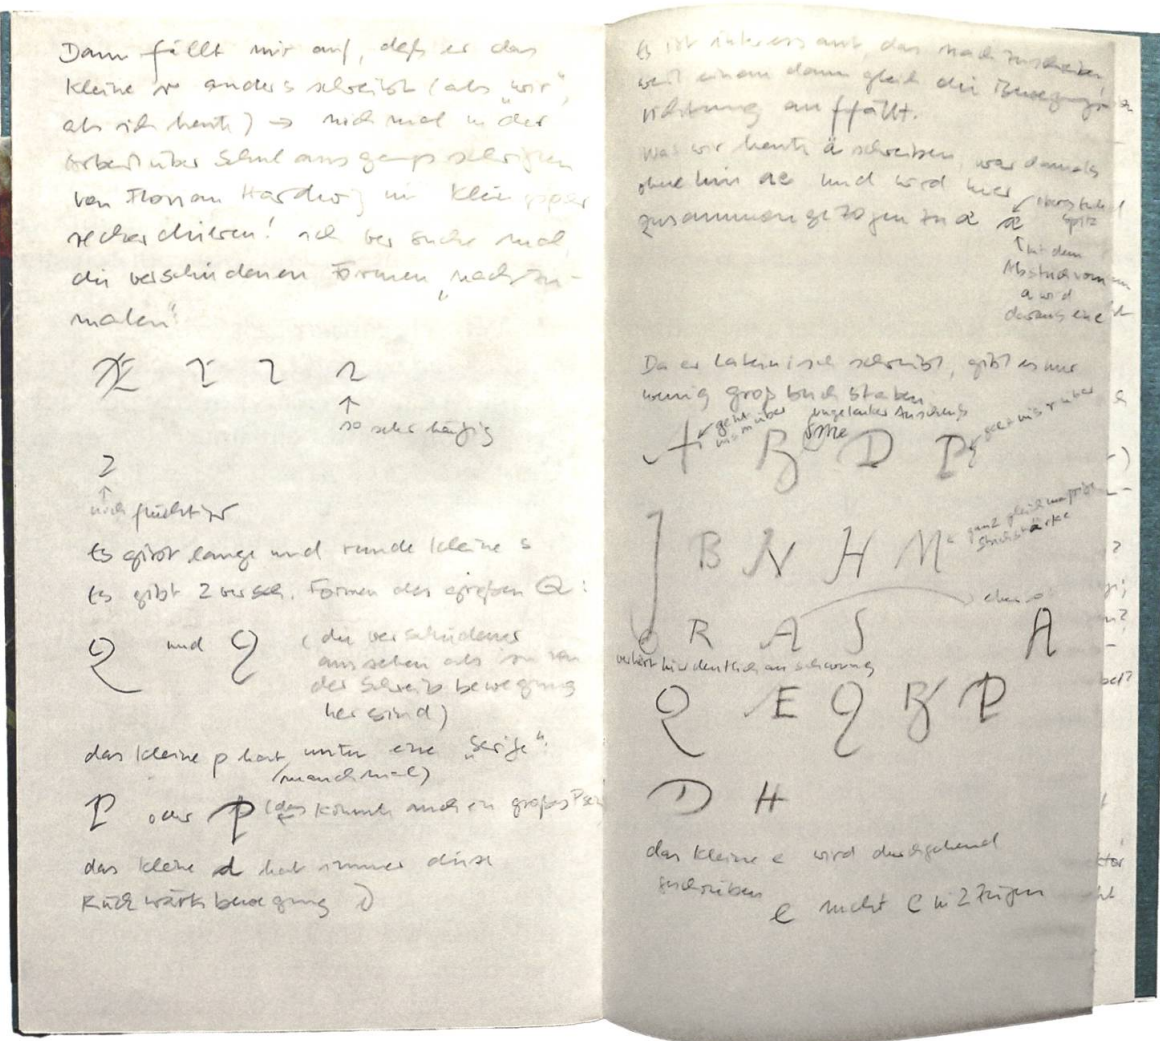 Dann fällt mir auf, daß er das
kleine r anders schreibt (als „wir",
als ich heute) → noch mal in der
Arbeit über Schulausgangsschriften
von Florian Hardwig in
recherchieren! ich versuche mal
die verschiedenen Formen „nachzu-
malen":
r r r r
↑
so sehr häufig
r
↑
noch flüchtiger
Es gibt lange und runde kleine s
Es gibt 2 versch. Formen des großen Q:
Q und Q (die verschiedener
aussehen als sie von
der Schreibbewegung
her sind)
das kleine p hat unten eine „Serife":
(manchmal)
p oder p (das könnte auch ein großes P sein
das kleine d hat immer diese
Rückwärtsbewegung
Es ist interessant, das nachzuschreiben
weil einem dann gleich die Bewegungs-
richtung auffällt.
Was wir heute ä schreiben, war damals
ohnehin ae und wird hier
zusammengezogen zu æ æ
oben
spitz
mit dem
Abstrich vom
a wird
daraus ein e
Da er lateinisch schreibt, gibt es nur
wenig Großbuchstaben
geht
ungelenker Anschein
A B D P
ganz gleichmäßige
Strichstärke
J B N H M
ebenso
R A S A
verliert hier deutlich an Schwung
Q E Q B P
D H
das kleine e wird durchgehend
geschrieben
e nicht e in 2 Zügen